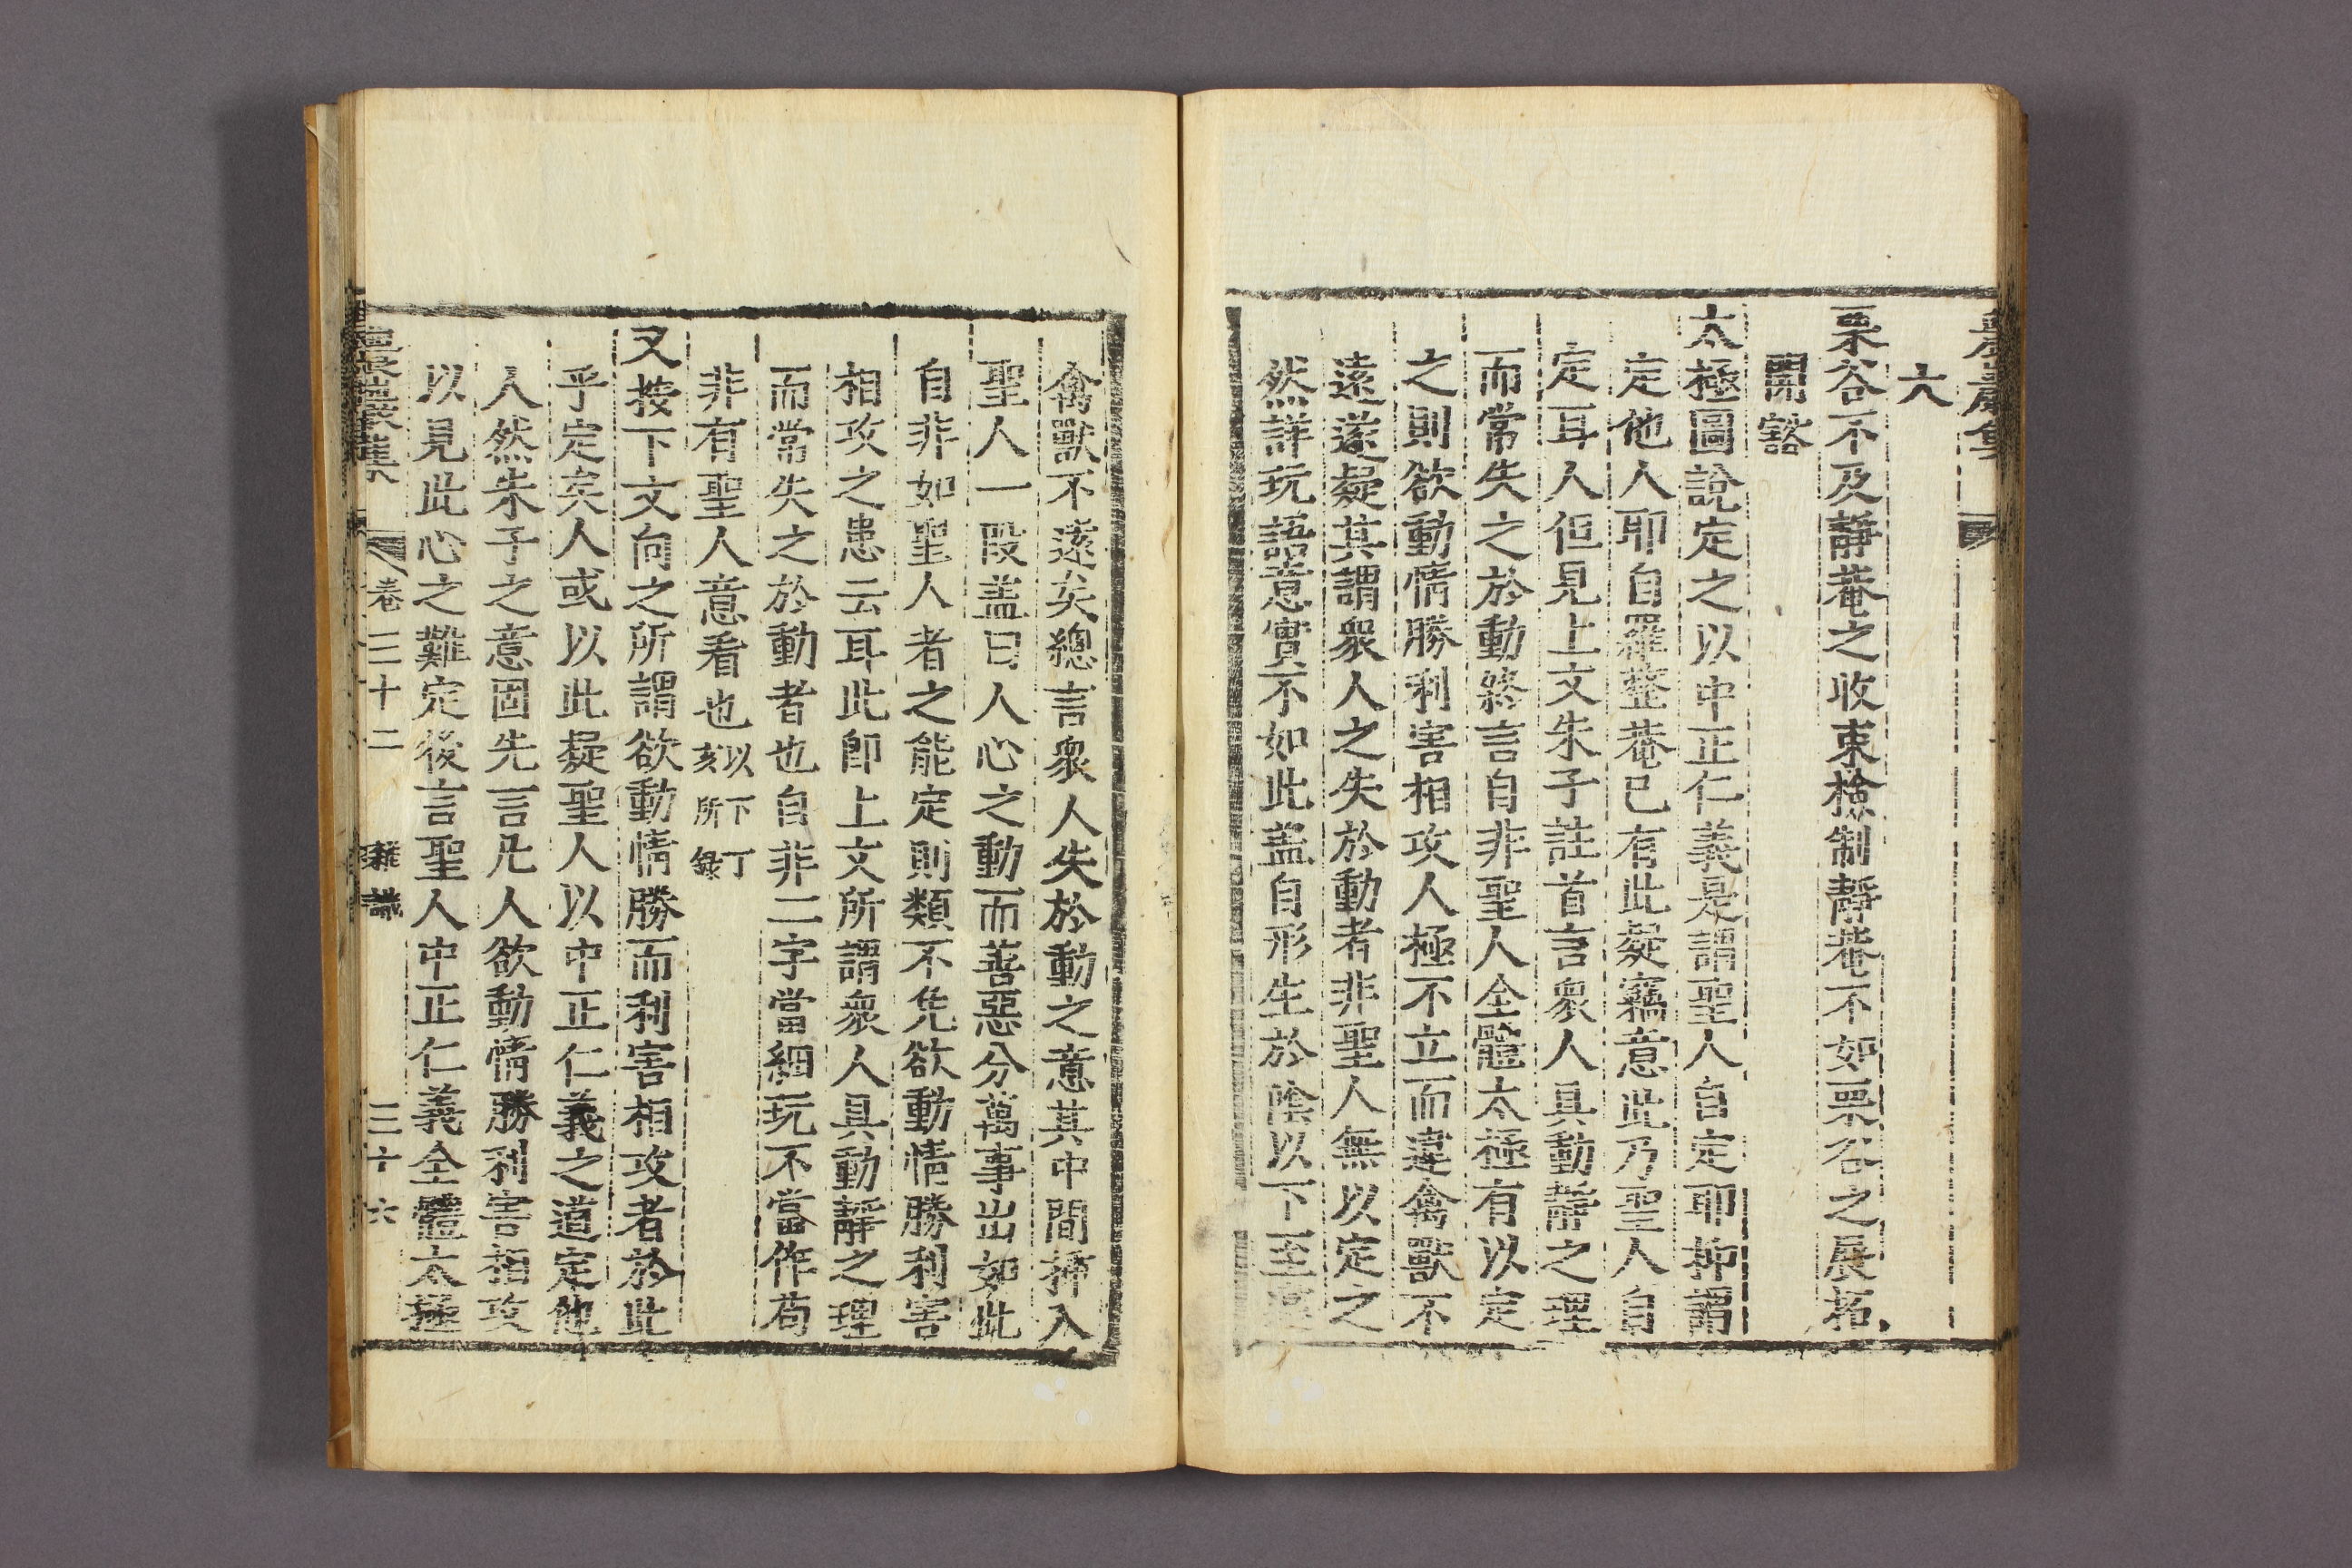 六
栗谷不及靜菴之收束檢制靜菴不如栗谷之展拓
開豁
太極圖說定之以中正仁義是謂聖人自定耶抑謂
定他人耶自羅整菴已有此疑竊意此乃聖人自
定耳人但見上文朱子註首言衆人具動靜之理
而常失之於動終言自非聖人全體太極有以定
之則欲動情勝利害相攻人極不立而違禽獸不
遠遂疑其謂衆人之失於動者非聖人無以定之
然詳玩語意實不如此盖自形生於陰以下至違
禽獸不遠矣總言衆人失於動之意其中間揷入
聖人一段盖曰人心之動而善惡分萬事出如此
自非如聖人者之能定則類不免欲動情勝利害
相攻之患云耳此卽上文所謂衆人具動靜之理
而常失之於動者也自非二字當細玩不當作苟
非有聖人意看也以下丁亥所錄
又按下文向之所謂欲動情勝而利害相攻者於此
乎定矣人或以此疑聖人以中正仁義之道定他
人然朱子之意固先言凡人欲動情勝利害相攻
以見此心之難定後言聖人中正仁義全體太極
卷三十二 雜識 三十六